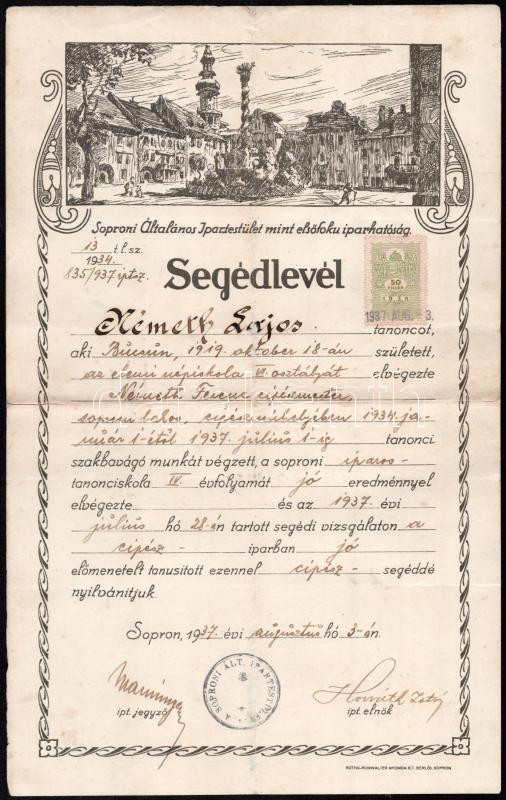 Soproni Általános Ipartestület mint elsőfoku iparhatóság.
13 t.l.sz.
1934.
835/937 ipt.sz.
Segédlevél
50
FILLÉR
1937 AUG. -3.
Németh Lajos tanoncot,
aki Bucsun, 1919. október 18-án született,
az elemi népiskola VI. osztályát elvégezte
Németh Ferenc cipészmester,
soproni lakos, cipészműhelyében 1934. ja-
nuár 1-étől 1937. július 1-ig tanonci
szakbavágó munkát végzett, a soproni iparos-
tanonciskola IV. évfolyamát jó eredménnyel
elvégezte és az 1937. évi
július hó 28-án tartott segédi vizsgálaton a
cipész - iparban jó
előmenetelt tanusított ezennel cipész - segéddé
nyilvánítjuk.
Sopron, 1937. évi augusztus hó 3-án.
A SOPRONI ÁLT. IPARTESTÜLET
ipt. jegyző
Horváth
ipt. elnök
RÖTTIG-ROMWALTER NYOMDA R.T. BÉRLŐI, SOPRON